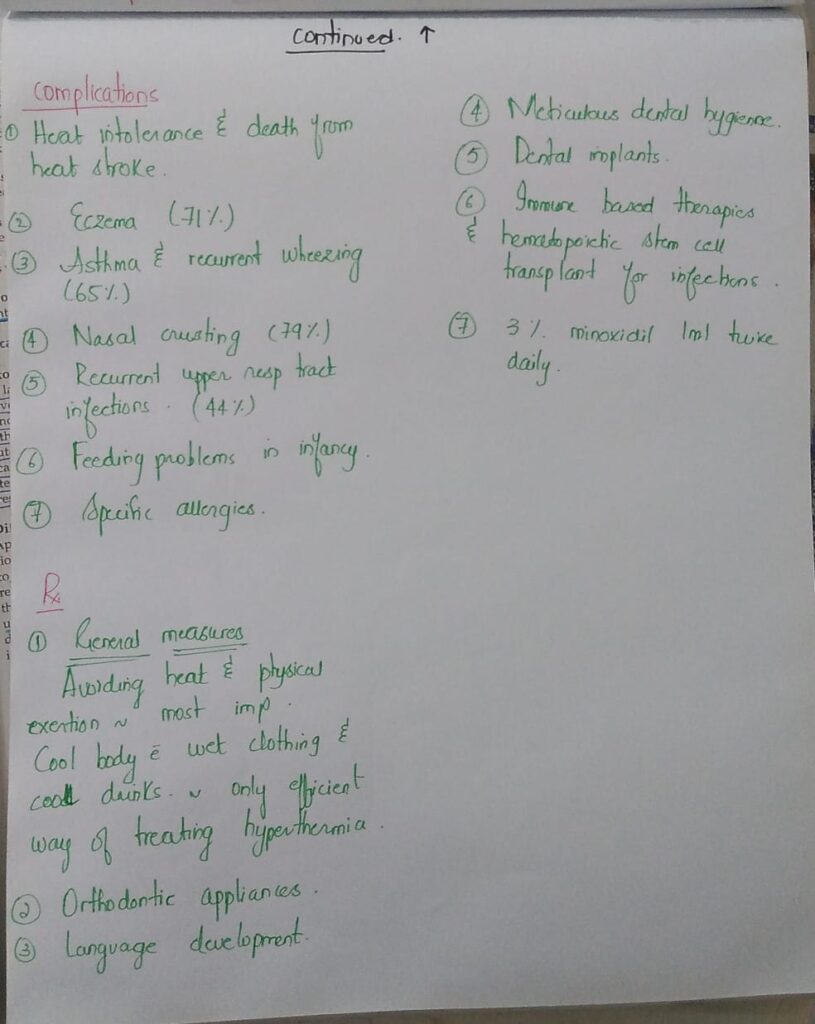 continued. ↑
Complications
① Heat intolerance & death from
heat stroke.
② Eczema (71%)
③ Asthma & recurrent wheezing
(65%)
④ Nasal crusting (79%)
⑤ Recurrent upper resp tract
infections. (44%)
⑥ Feeding problems in infancy.
⑦ Specific allergies.
Rx
① General measures
Avoiding heat & physical
exertion ~ most imp.
Cool body c̄ wet clothing &
cool drinks. ~ only efficient
way of treating hyperthermia.
② Orthodontic appliances.
③ Language development.
④ Meticulous dental hygienne.
⑤ Dental implants.
⑥ Immune based therapies
& hematopoietic stem cell
transplant for infections.
⑦ 3% minoxidil 1ml twice
daily.